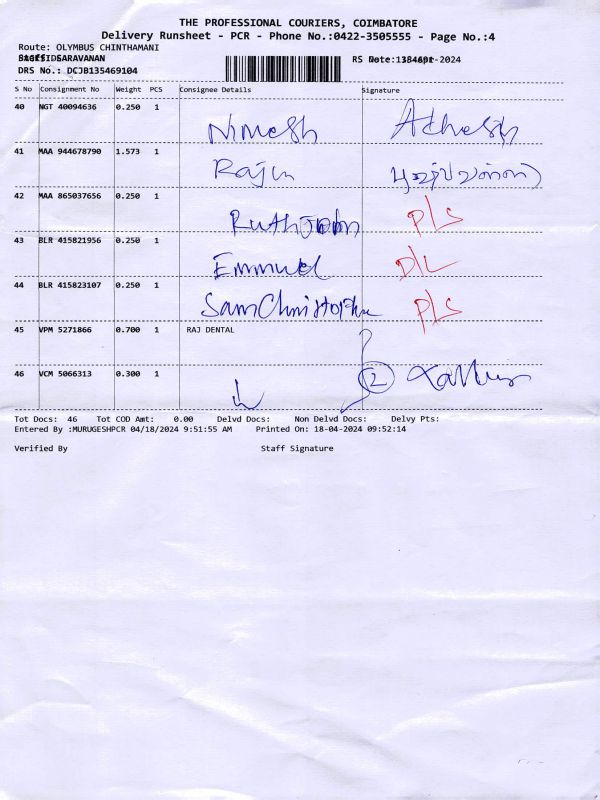 THE PROFESSIONAL COURIERS, COIMBATORE
Delivery Runsheet - PCR - Phone No.:0422-3505555 - Page No.:4
Route: OLYMBUS CHINTHAMANI
SARAVANAN
DRS No.: DCJB135469104
S No Consignment No Weight PCS Consignee Details Signature
40 NGT 40094636 0.250 1 Nimesh
41 MAA 944678790 1.573 1
42 MAA 865037656 0.250 1 Ruth John P/S
43 BLR 415821956 0.250 1 D/L
44 BLR 415823107 0.250 1 P/S
45 VPM 5271866 0.700 1 RAJ DENTAL
46 VCM 5066313 0.300 1 2
Tot Docs: 46 Tot COD Amt: 0.00 Delvd Docs: Non Delvd Docs: Delvy Pts:
Entered By :MURUGESHPCR 04/18/2024 9:51:55 AM Printed On: 18-04-2024 09:52:14
Verified By Staff Signature